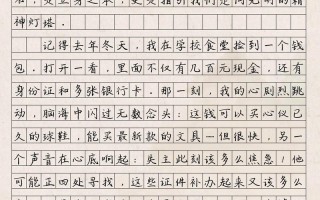 神灯塔.
记得去年冬天,我在学校食堂捡到一个钱
包,打开一看,里面不仅有几百元现金,还有
身份证和多张银行卡.那一刻,我的心剧烈跳
动,脑海中闪过无数念头:这钱可以买心仪已
久的球鞋,能买最新款的文具—但很快,另一
个声音在心底响起:失主此刻该多么焦急!他
可能正四处寻找,这些证件补办起来又该多么